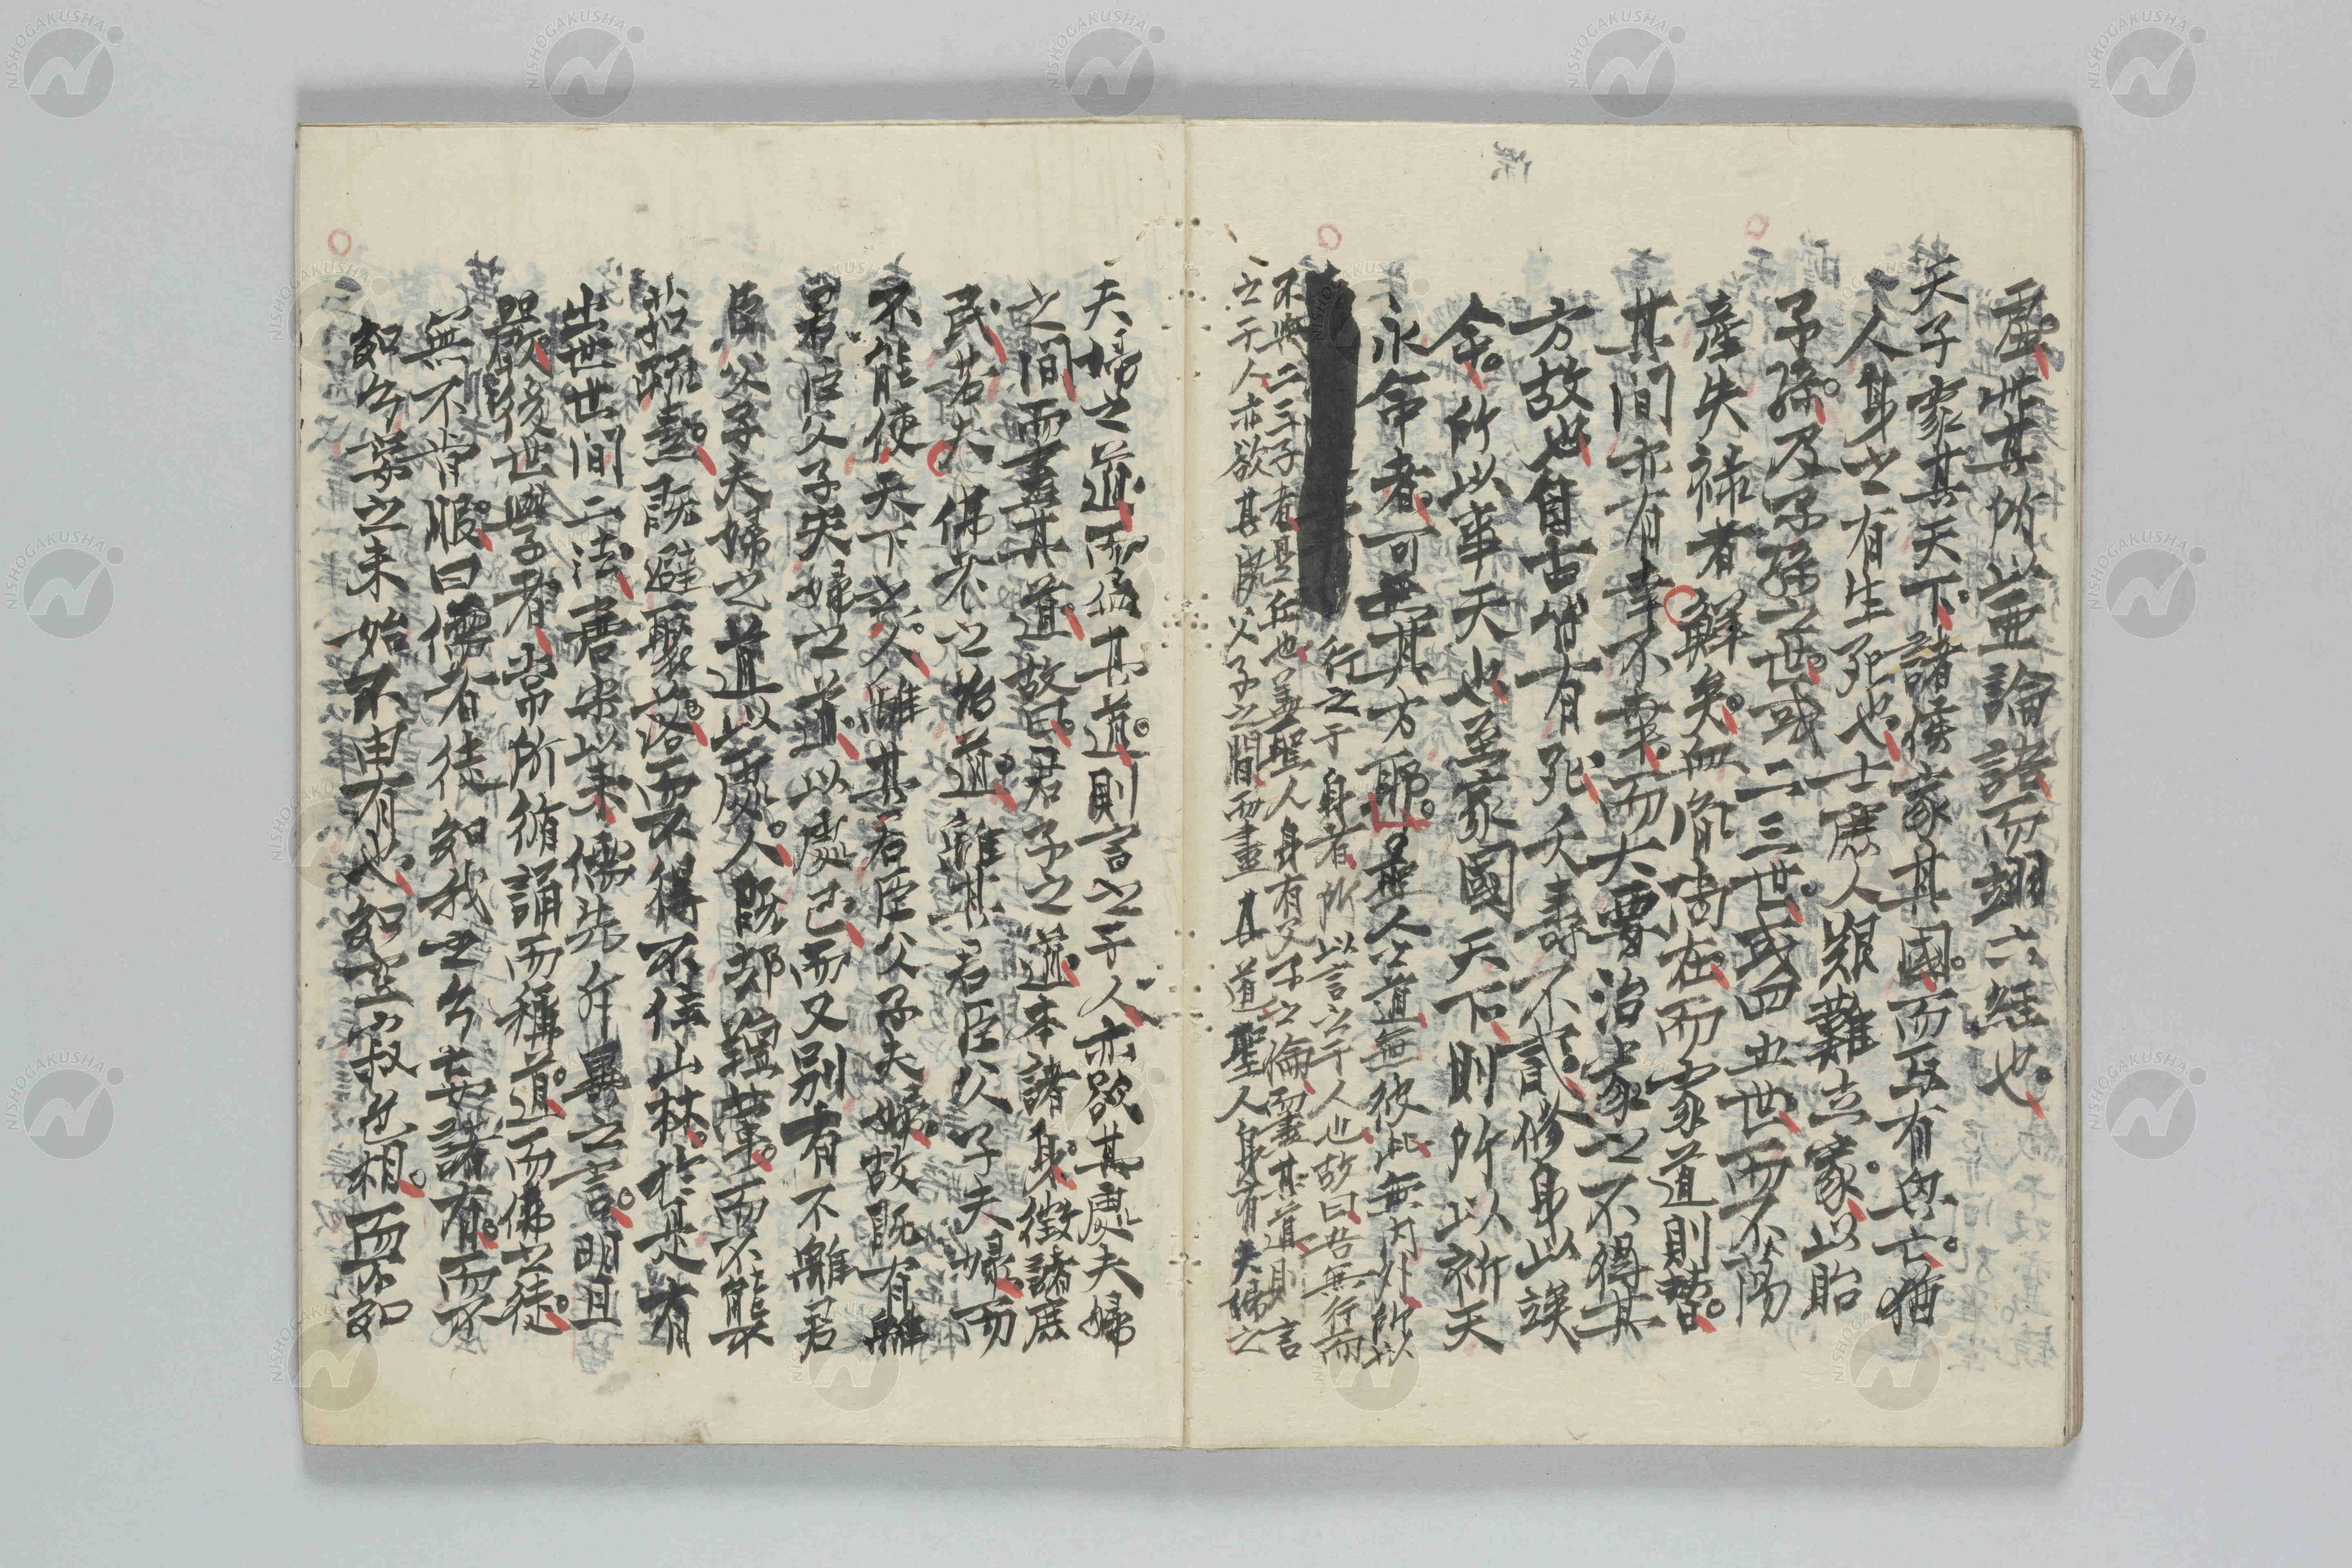 虛。此其所以亞論語而翅六經也。
天子家其天下。諸侯家其國。而互有興亡。猶
人身之有生死也。士庶人艱難立家。以貽
子孫。及子孫之世。或二三世。或四五世。而不蕩
產失祿者鮮矣。血脉尚在。而家道則替。
其間亦有幸不幸。而大要治家之不得其
方故也。自古皆有死。夭壽不貳。修身以竢
命。所以事天也。至家國天下。則所以祈天
永命者。可無其方耶。聖人之道。無彼此。無內外。所以
行之于身者。所以言之于人也。故曰吾無行而
不與二三子者。是丘也。蓋聖人身有父子之倫。而盡其道。則言
之于人。亦欲其既父子之間。而盡其道。聖人身有夫婦之
夫婦之道。而盡其道。則言之于人。亦欲其處夫婦
之間而盡其道。故曰。君子之道。本諸身。徵諸庶
民。若夫佛老之為道。離其君臣父子夫婦。而
不能使天下之人離其君臣父子夫婦。故既有離
君臣父子夫婦之道。以處己。而又別有不離君
臣父子夫婦之道。以處人。既却葷。而不能
茹蔬。既避聚落。而不得不住山林。於是有
出世世間二法。唐宋以來。儒先斥異之言。明且
嚴。後世學者。常所循誦而稱道。而佛之徒。
無不肯服。曰儒者徒知我之今妄諸有。而不
知今妄之未始不由有也。知空寂色相。而不知